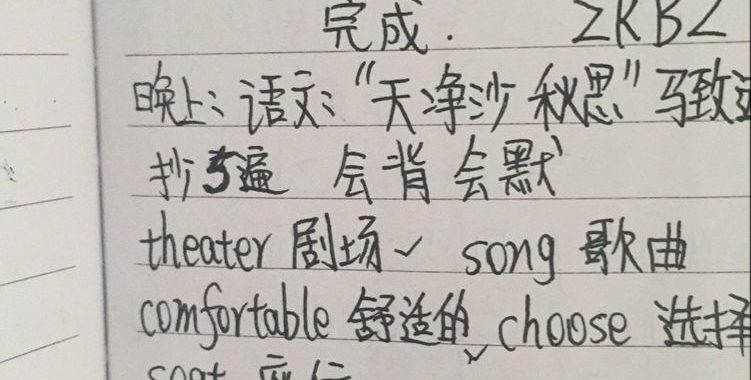 完成. ZKBZ
晚上: 语文: "天净沙 秋思" 马致远
抄5遍 会背 会默
theater 剧场 song 歌曲
comfortable 舒适的 choose 选择